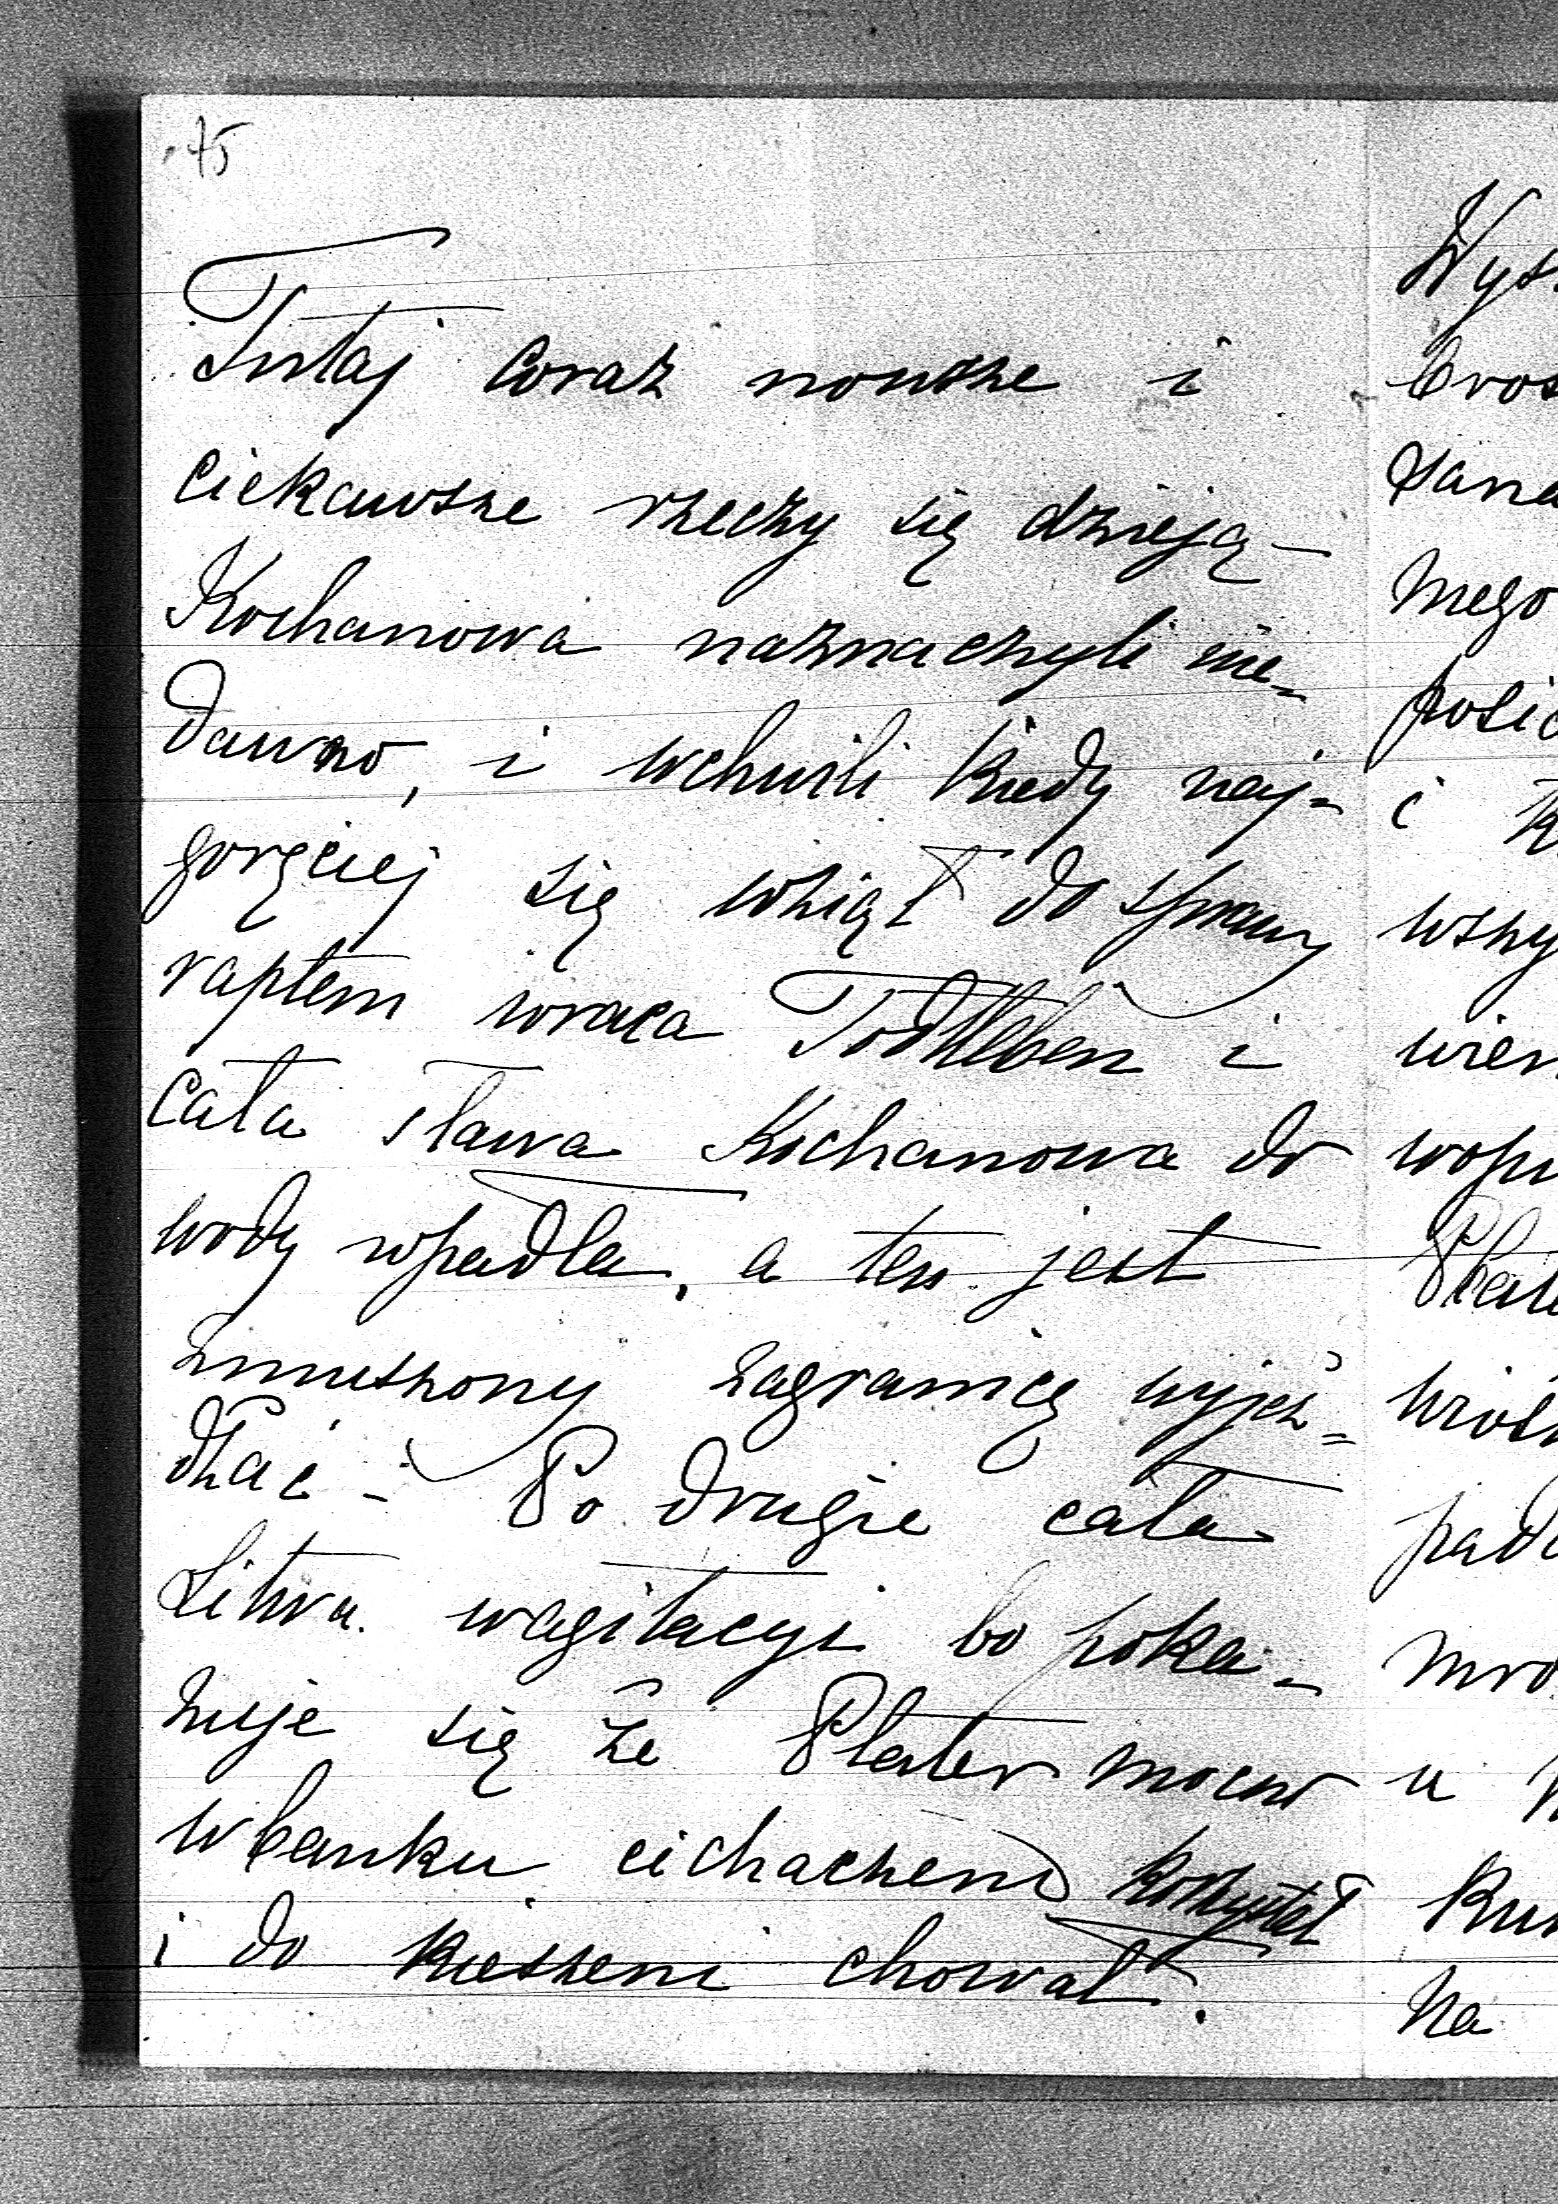 75
Tutaj coraz nowsze i
ciekawsze rzeczy się dzieją –
Kochanowa naznaczyli nie-
dawno, i wchwili kiedy naj-
goręciej się wziął do sprawy
raptem wraca Todtleben i
cała sława Kochanowa do
wody wpadła, a ten jest
zmuszony zagranicę wyjeż=
dżać – Po drugie cała
Litwa wagitacyi bo poka-
zuje się że Plater mocno
w banku cichaczem korzystał
i do kieszeni chował.
Wys
bros
sana
mego
posić
i K
wszy
wier
wopi
Plate
wiośn
pad
mro
u
Kur
Na